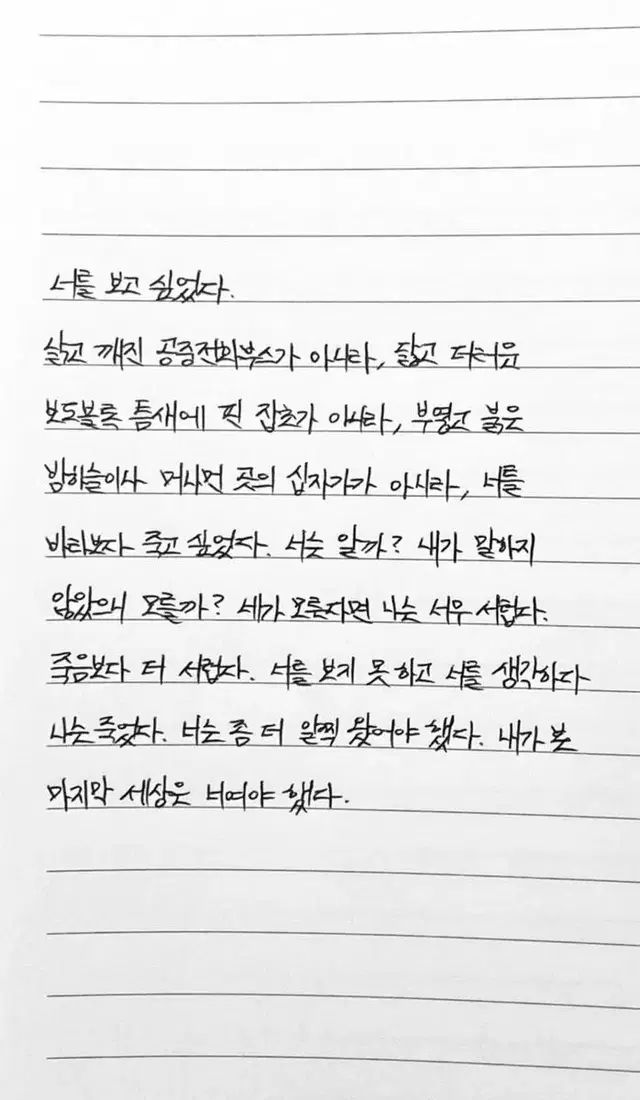 너를 보고 싶었다.
낡고 깨진 공중전화부스가 아니라, 닳고 더러운
보도블록 틈새에 핀 잡초가 아니라, 부옇고 붉은
밤하늘이나 머나먼 곳의 십자가가 아니라, 너를
바라보다 죽고 싶었다. 너는 알까? 내가 말하지
않았으니 모를까? 네가 모른다면 나는 너무 서럽다.
죽음보다 더 서럽다. 너를 보지 못하고 너를 생각하다
나는 죽었다. 너는 좀 더 일찍 왔어야 했다. 내가 본
마지막 세상은 너여야 했다.